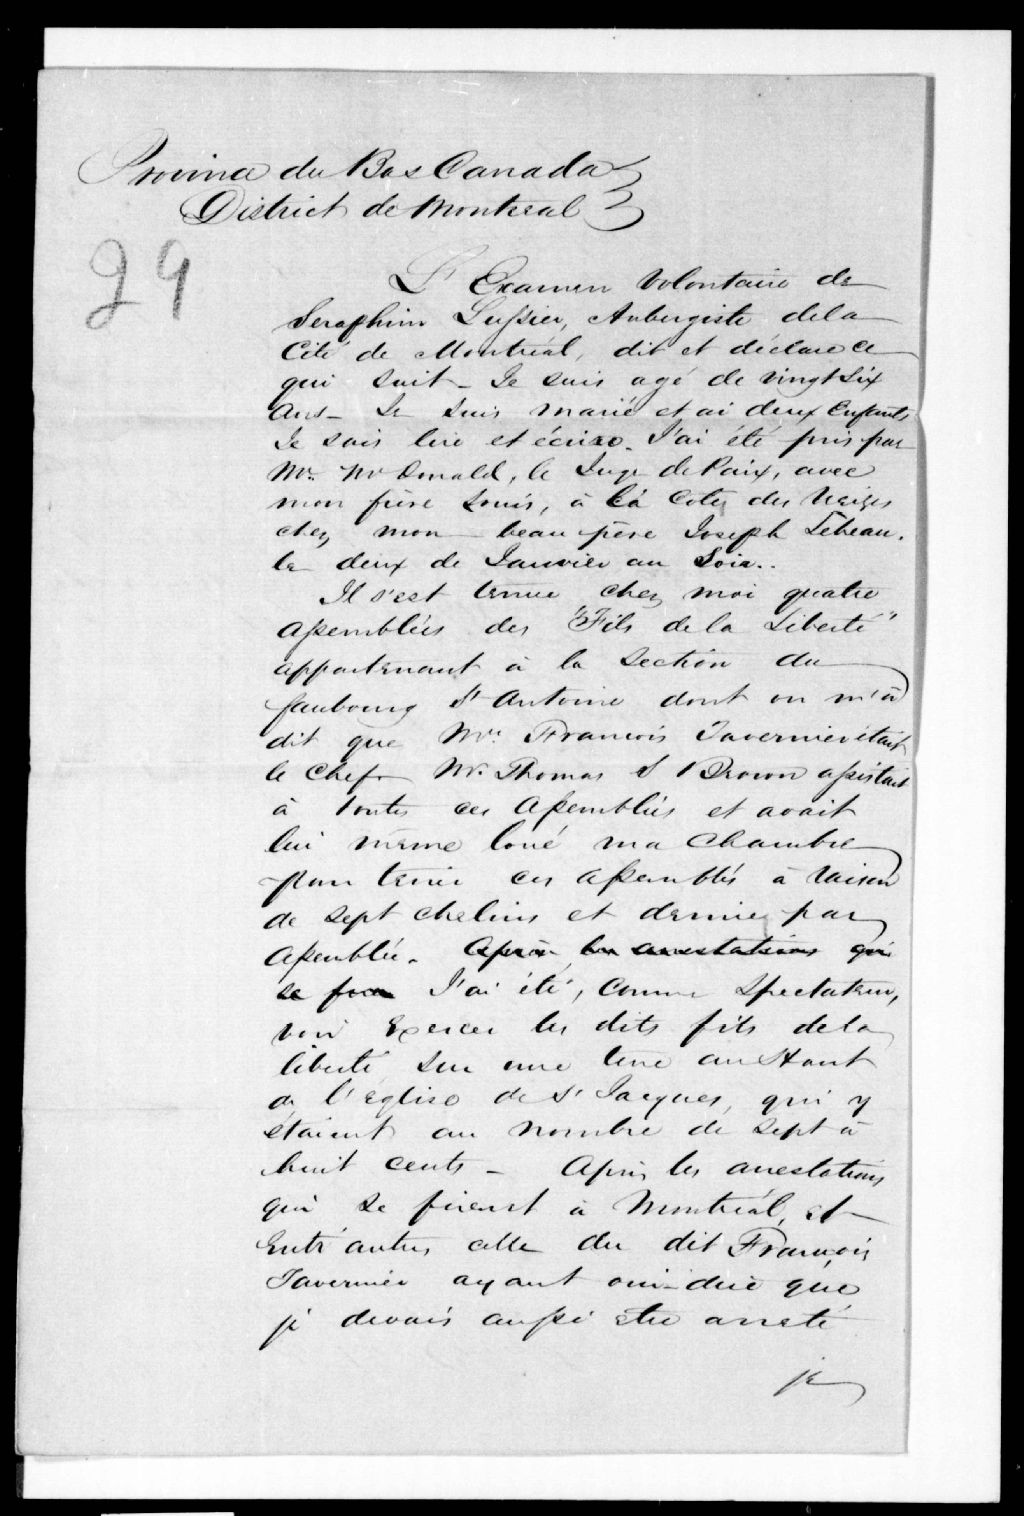 Province du Bas Canada
District de Montreal
29
L'Examen volontaire de
Seraphin Lussier, Aubergiste dela
Cité de Montréal, dit et déclare ce
qui suit - Je suis agé de vingt six
ans - Je suis marié et ai deux Enfants
Je sais lire et écrire. J'ai été pris par
Mr. McDonald, le Juge de Paix, avec
mon frère Louis, à la Cote des Neiges
chez mon beau père Joseph Lebeau.
le deux de Janvier au Soir..
Il s'est tenue chez moi quatre
assemblées des "Fils de la Liberté"
appartenant à la section du
faubourg St Antoine dont on m'a
dit que Mr. Francois Tavernier était
le Chef - Mr. Thomas S Brown assistait
à toutes ces Assemblées et avait
lui même loué ma chambre
pour tenir ces assemblés à raison
de sept chelins et demie par
assemblée. Après les arrestations qui
se firen J'ai été, comme spectateur,
voir Exercer les dits fils dela
liberté sur une terre au Haut
de l'église de St Jacques, qui y
étaient au nombre de sept à
huit cents - Après les arrestations
qui se firent à Montréal, et
Entr'autres celle du dit François
Tavernier ayant oui-dire que
je devais aussi être arreté
je